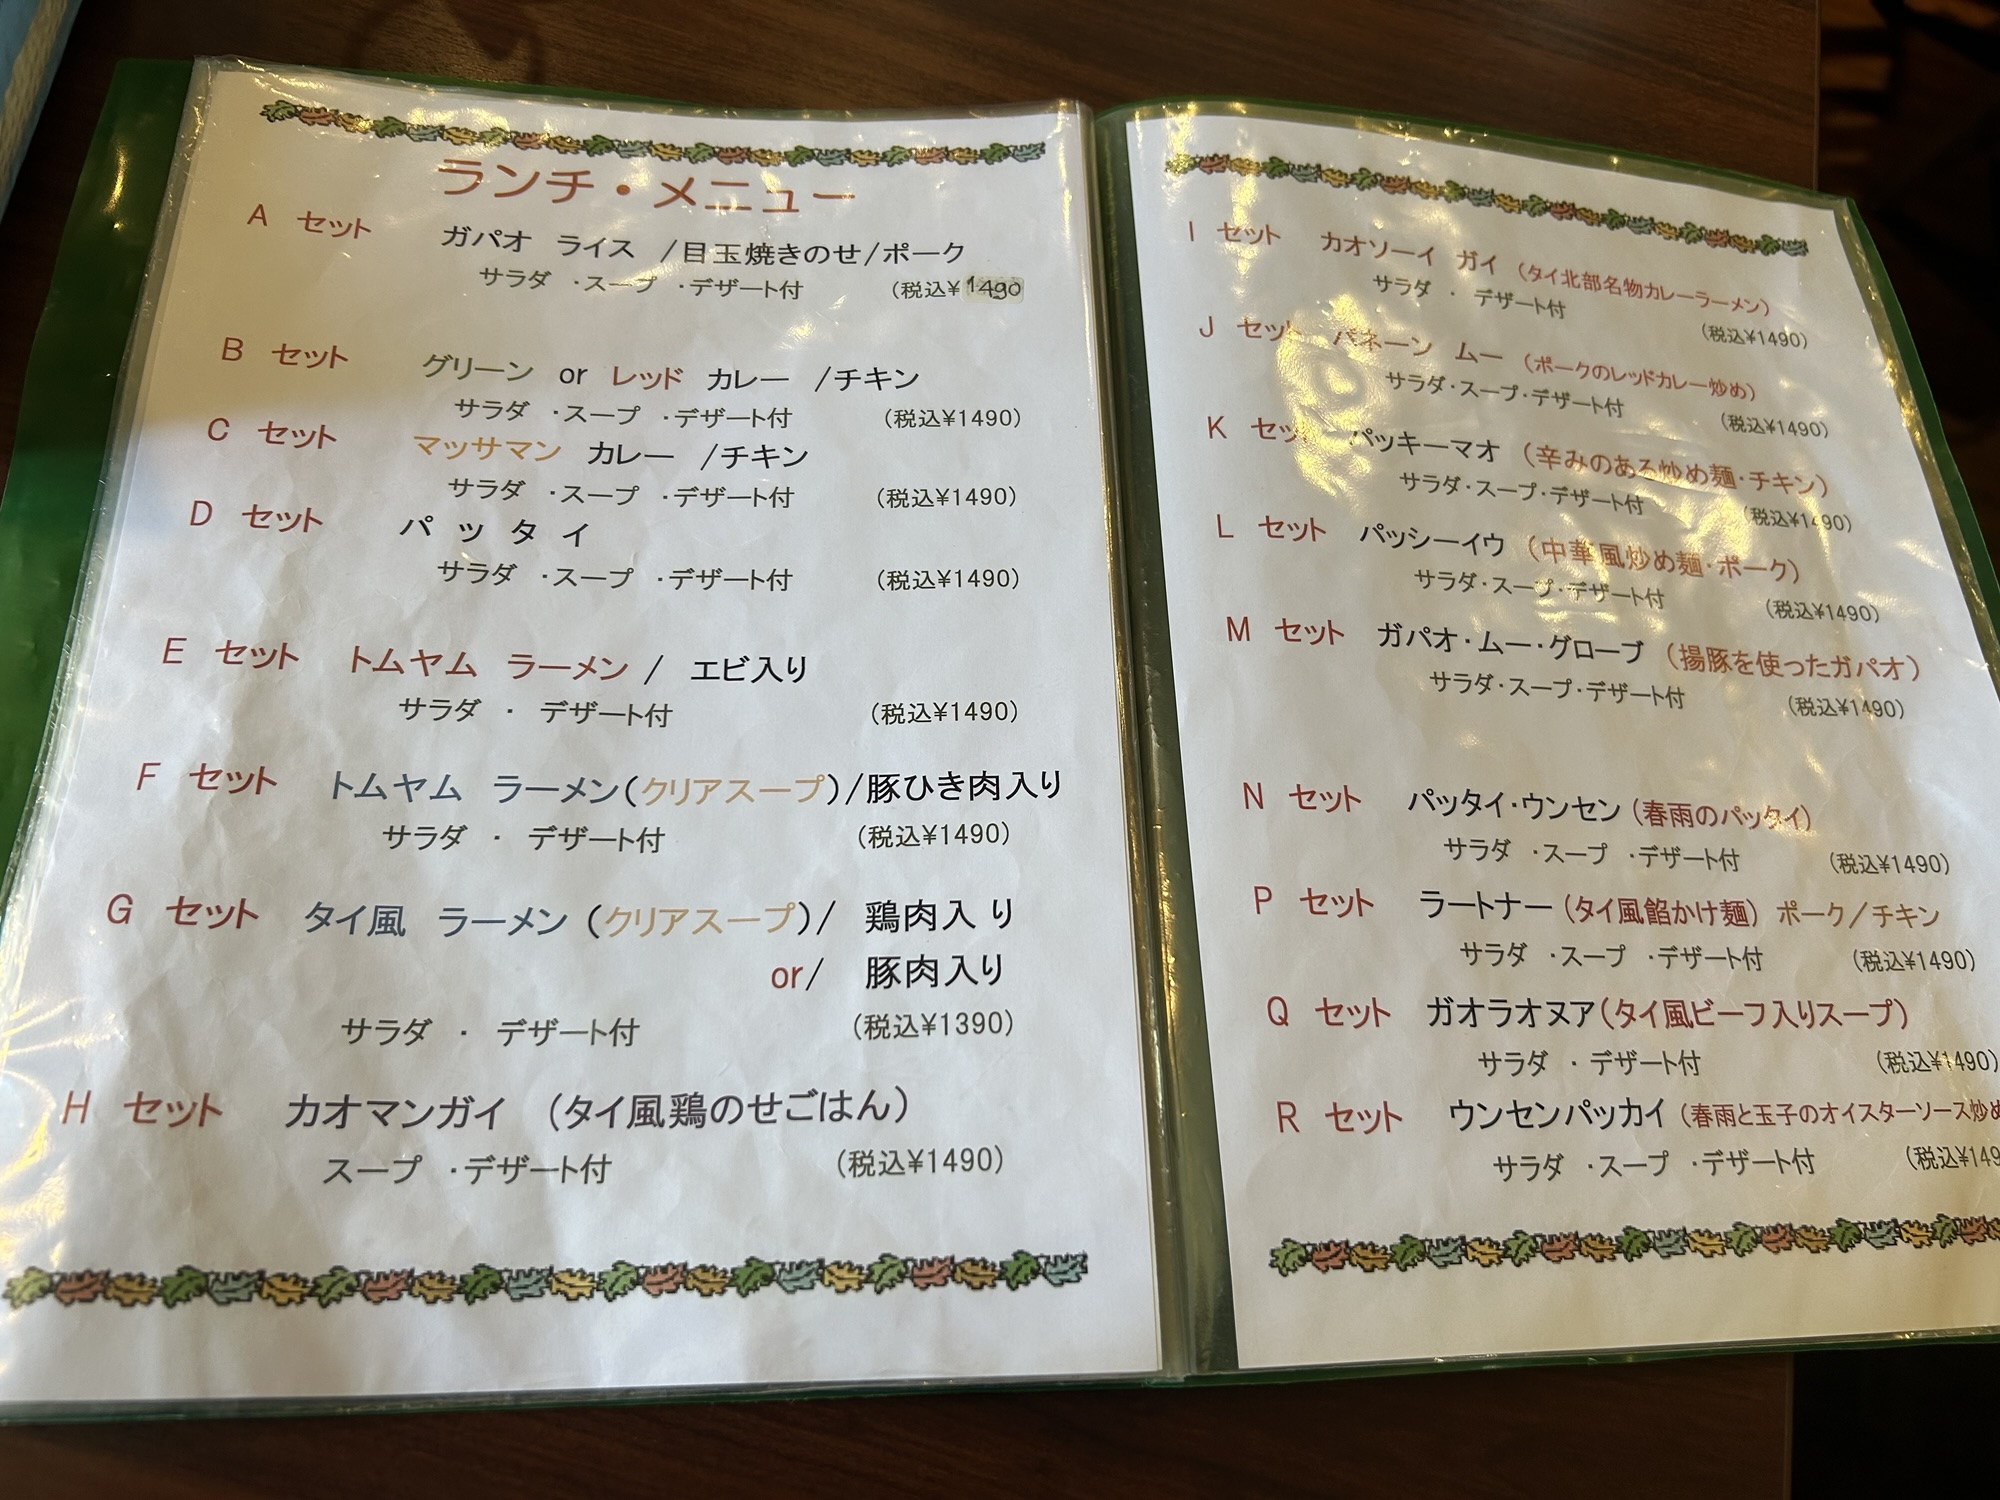 ランチ・メニュー
A セット ガパオ ライス /目玉焼きのせ/ポーク
サラダ ・スープ ・デザート付 (税込¥1490
B セット グリーン or レッド カレー /チキン
サラダ ・スープ ・デザート付 (税込¥1490)
C セット マッサマン カレー /チキン
サラダ ・スープ ・デザート付 (税込¥1490)
D セット パッタイ
サラダ ・スープ ・デザート付 (税込¥1490)
E セット トムヤム ラーメン / エビ入り
サラダ ・ デザート付 (税込¥1490)
F セット トムヤム ラーメン(クリアスープ)/豚ひき肉入り
サラダ ・ デザート付 (税込¥1490)
G セット タイ風 ラーメン (クリアスープ)/ 鶏肉入り
or/ 豚肉入り
サラダ ・ デザート付 (税込¥1390)
H セット カオマンガイ (タイ風鶏のせごはん)
スープ ・デザート付 (税込¥1490)
I セット カオソーイ ガイ (タイ北部名物カレーラーメン)
サラダ ・ デザート付 (税込¥1490)
J セット パネーン ムー (ポークのレッドカレー炒め)
サラダ・スープ・デザート付 (税込¥1490)
K セット パッキーマオ (辛みのある炒め麺・チキン)
サラダ・スープ・デザート付 (税込¥1490)
L セット パッシーイウ (中華風炒め麺・ポーク)
サラダ・スープ・デザート付 (税込¥1490)
M セット ガパオ・ムー・グローブ (揚豚を使ったガパオ)
サラダ・スープ・デザート付 (税込¥1490)
N セット パッタイ・ウンセン (春雨のパッタイ)
サラダ ・スープ ・デザート付 (税込¥1490)
P セット ラートナー (タイ風餡かけ麺) ポーク/チキン
サラダ ・スープ ・デザート付 (税込¥1490)
Q セット ガオラオヌア(タイ風ビーフ入りスープ)
サラダ ・ デザート付 (税込¥1490)
R セット ウンセンパッカイ (春雨と玉子のオイスターソース炒め
サラダ ・スープ ・デザート付 (税込¥149